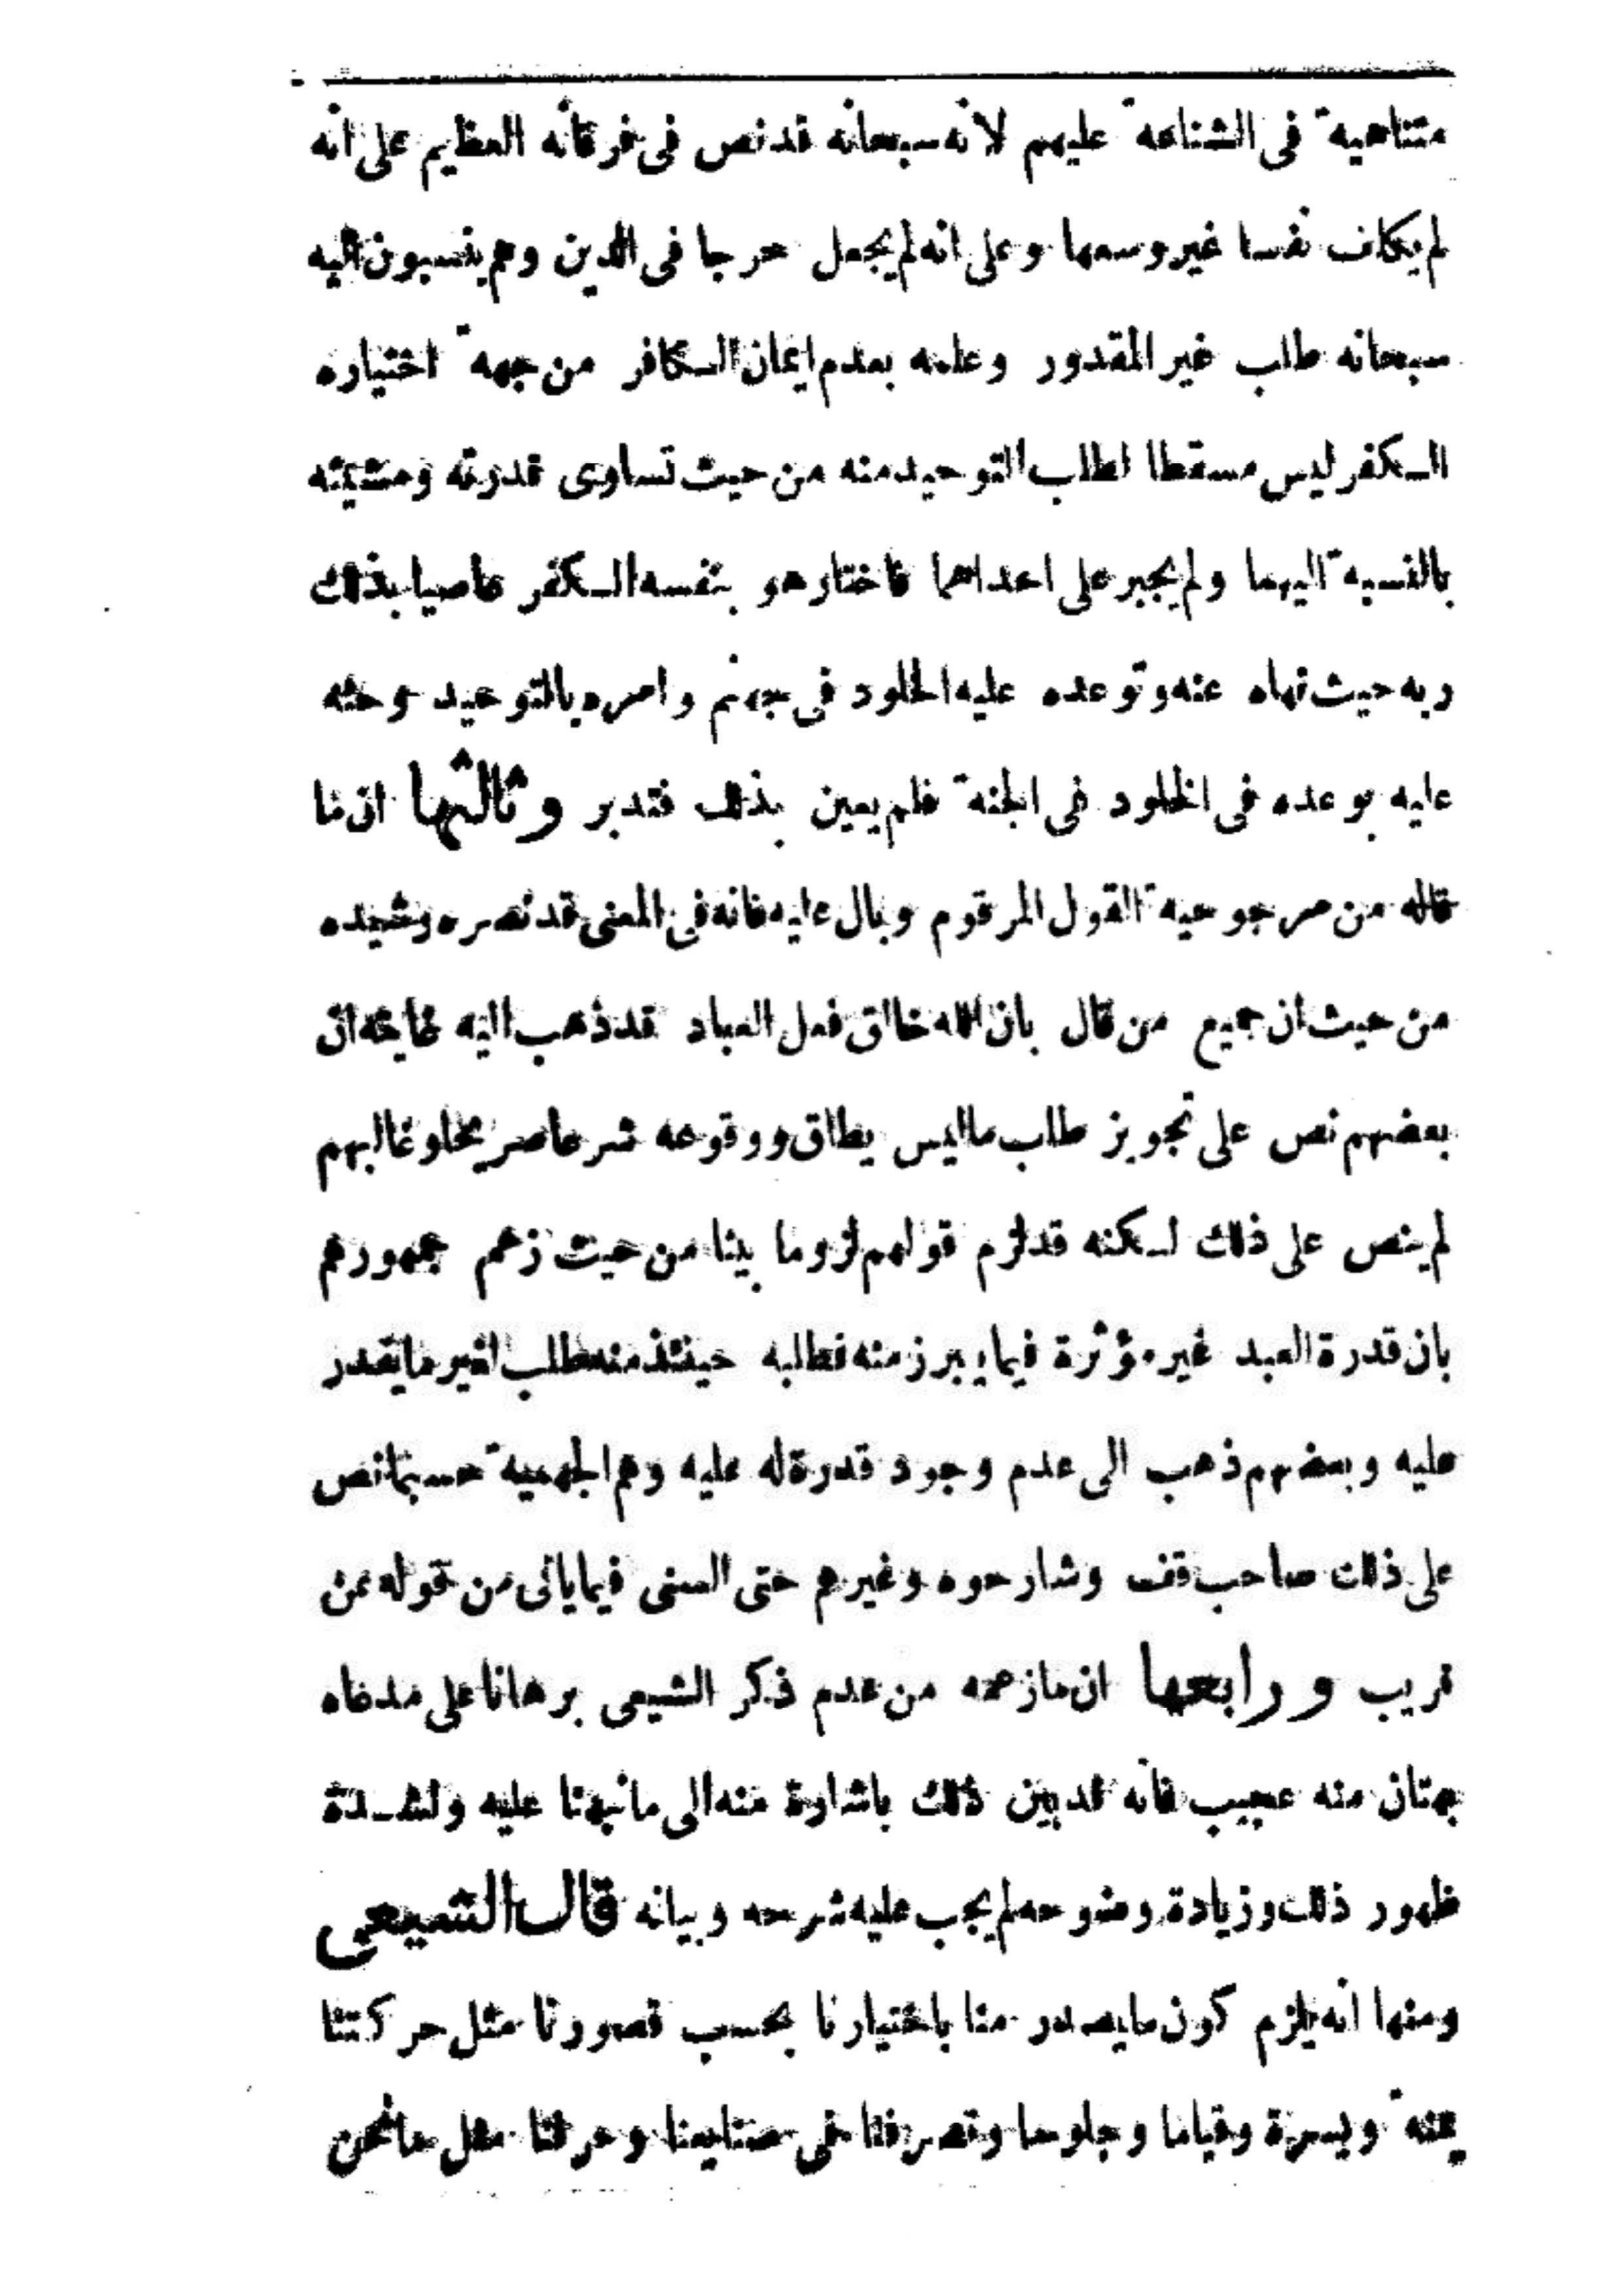 متناهية فى الشناعة عليهم لانه سبحانه قد نص فى فرقانه العظيم على انه
لم يكلف نفسا غير وسعها وعلى انه لم يجعل حرجا فى الدين وهم ينسبون اليه
سبحانه طلب غير المقدور وعلمه بعدم ايمان الكافر من جهة اختياره
الكفر ليس مسقطا لطلب التوحيد منه من حيث تساوى قدرته ومشيئته
بالنسبة اليهما ولم يجبر على احداهما فاختار هو بنفسه الكفر عاصيا بذلك
ربه حيث نهاه عنه وتوعده عليه الخلود فى جهنم وامره بالتوحيد وحثه
عليه بوعده فى الخلود فى الجنة فلم يعين بذلك فتدبر وثالثها ان ما
قاله من مرجوحية القول المرقوم وبال عليه فانه فى المعنى قد نصره وشيده
من حيث ان جميع من قال بان الله خالق فعل العباد قد ذهب اليه غايته ان
بعضهم نص على تجويز طلب ما ليس يطاق ووقوعه شرعا صريحا وغالبهم
لم ينص على ذلك لكنه قد لزم قولهم لزوما بينا من حيث زعم جمهورهم
بان قدرة العبد غير مؤثرة فيما يبرز منه فطلبه حينئذ منه طلب لغير ما يقدر
عليه وبعضهم ذهب الى عدم وجود قدرة له عليه وهم الجهمية حسبما نص
على ذلك صاحب قف وشارحوه وغيرهم حتى السنى فيما ياتى من قوله عن
قريب ورابعها ان ما زعمه من عدم ذكر الشيعى برهانا على مدعاه
بهتان منه عجيب فانه قد بين ذلك باشارة منه الى ما نبهنا عليه ولشدة
ظهور ذلك وزيادة وضوحه لم يجب عليه شرحه وبيانه قال الشيعى
ومنها انه يلزم كون ما يصدر منا باختيارنا بحسب قصورنا مثل حركتنا
يمنة ويسرة وقياما وجلوسا وتصرفنا فى صنايعنا وحرفنا مثل ما نحن